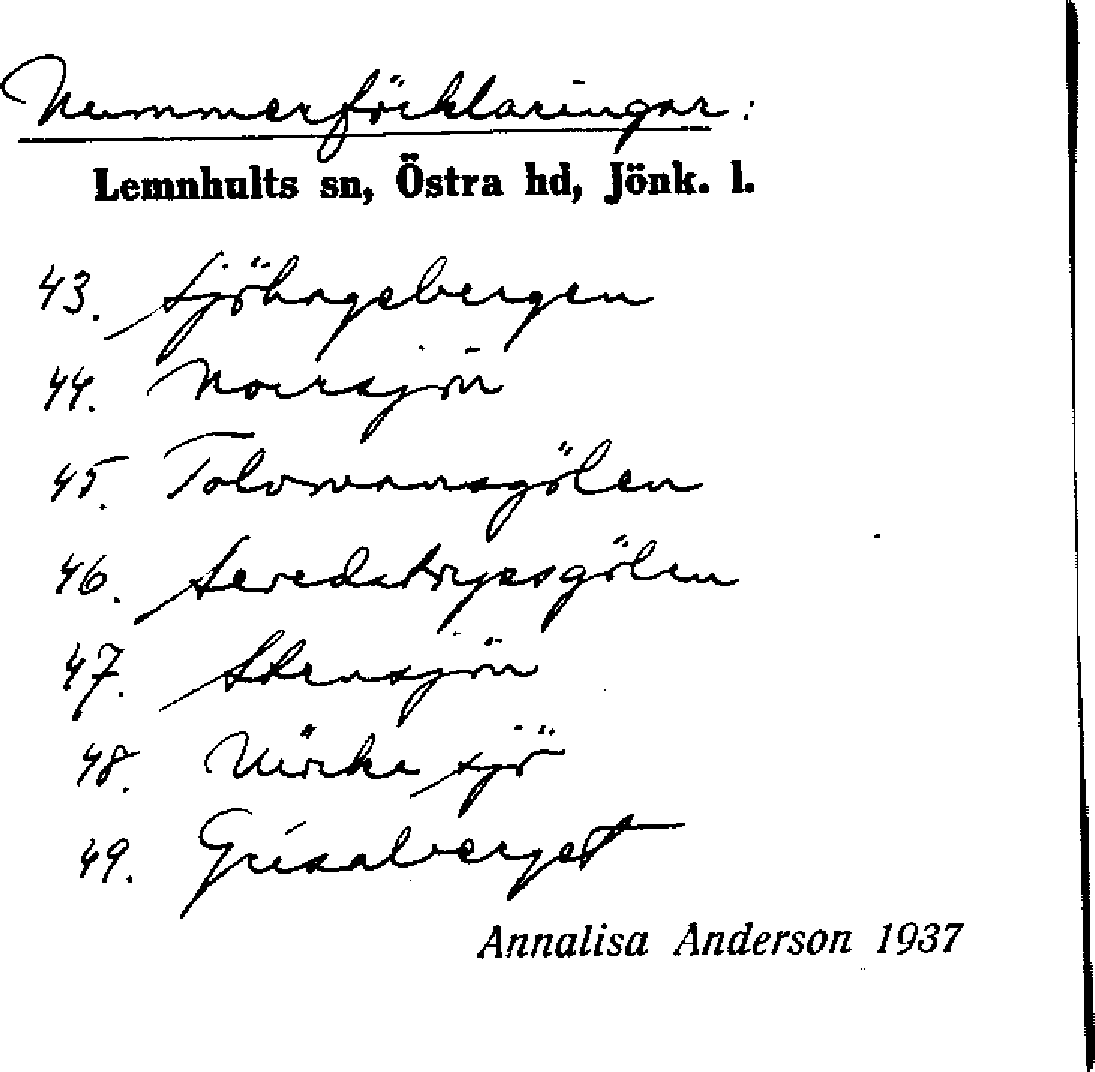 Nummerförklaringar:
Lemnhults sn, Östra hd, Jönk. l.
43. Sjöhagebergen
44. Norrsjön
45. Tolvmansgölen
46. gölen
47. Stensjön
48. sjö
49. Grisaberget
Annalisa Anderson 1937